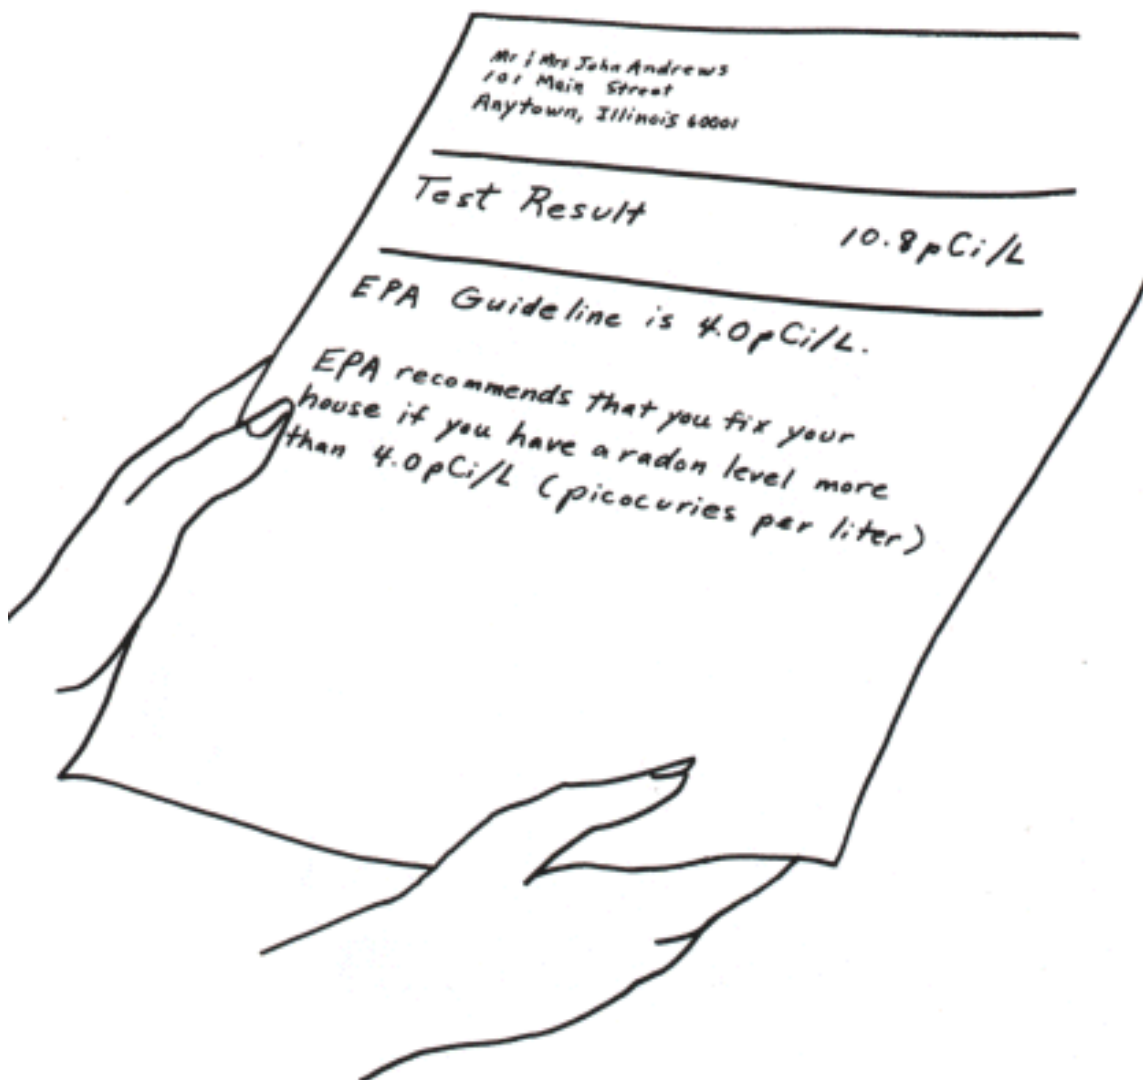 Mr & Mrs John Andrews
101 Main Street
Anytown, Illinois 60001
Test Result 10.8 pCi/L
EPA Guideline is 4.0 pCi/L.
EPA recommends that you fix your
house if you have a radon level more
than 4.0 pCi/L (picocuries per liter)